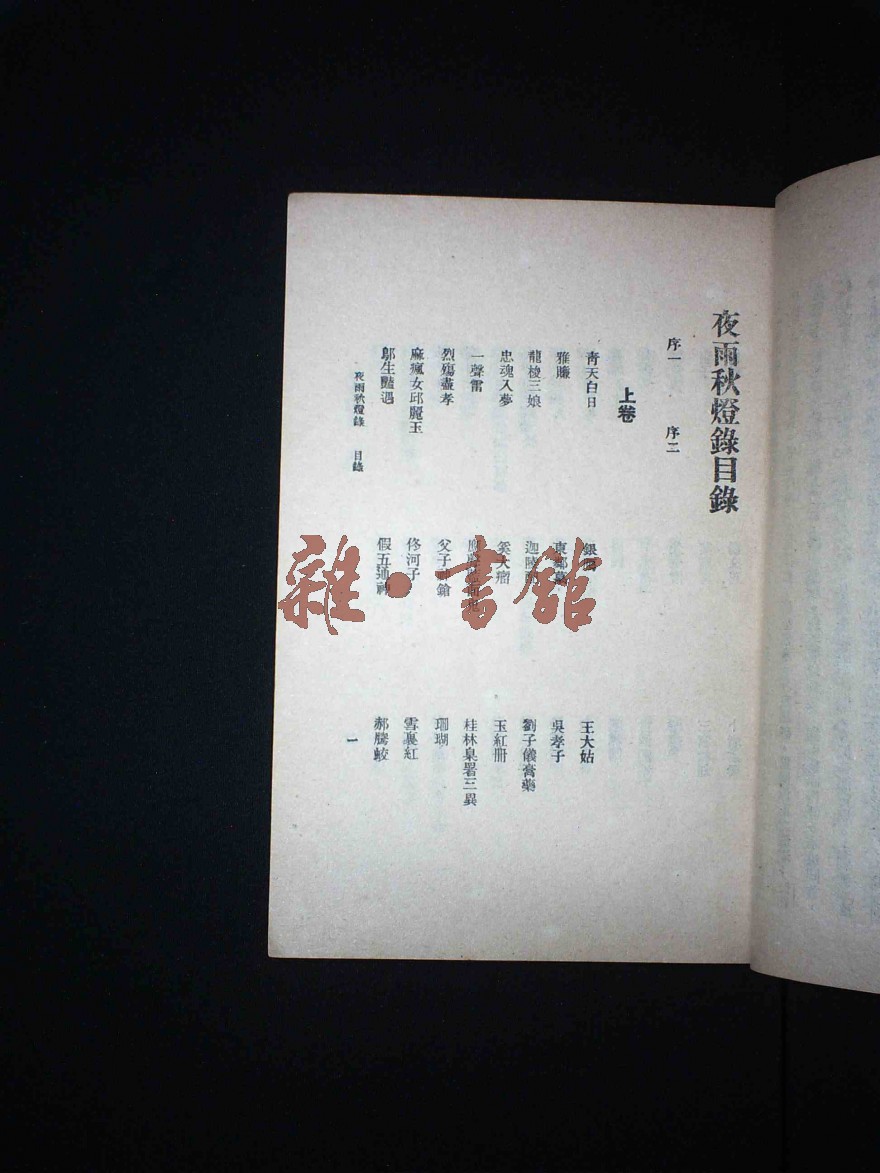 夜雨秋燈錄目錄
序一 序二
上卷
青天白日 銀 王大姑
雅賺 東鄰墓 吳孝子
龍梭三娘 迦陵 劉子儀膏藥
忠魂入夢 奚大瘤 玉紅册
一聲雷 桂林臬署三異
烈殤盡孝 父子 鎗 珊瑚
麻瘋女邱麗玉 佟河子 雪裏紅
鄔生豔遇 假五通神 郝騰蛟
夜雨秋燈錄 目錄 一
雜·書館